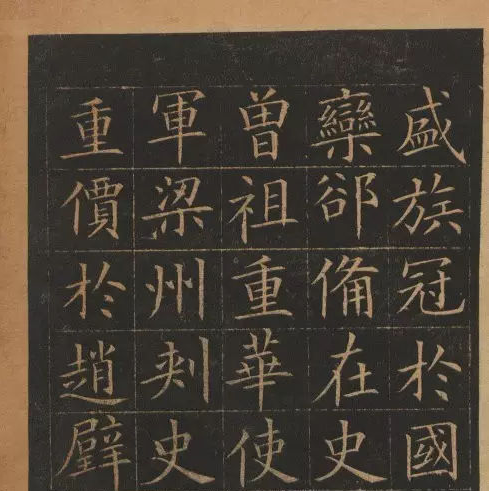 盛族冠於國
欒郤俻在史
曾祖重華使
軍梁州刾史
重價於趙璧